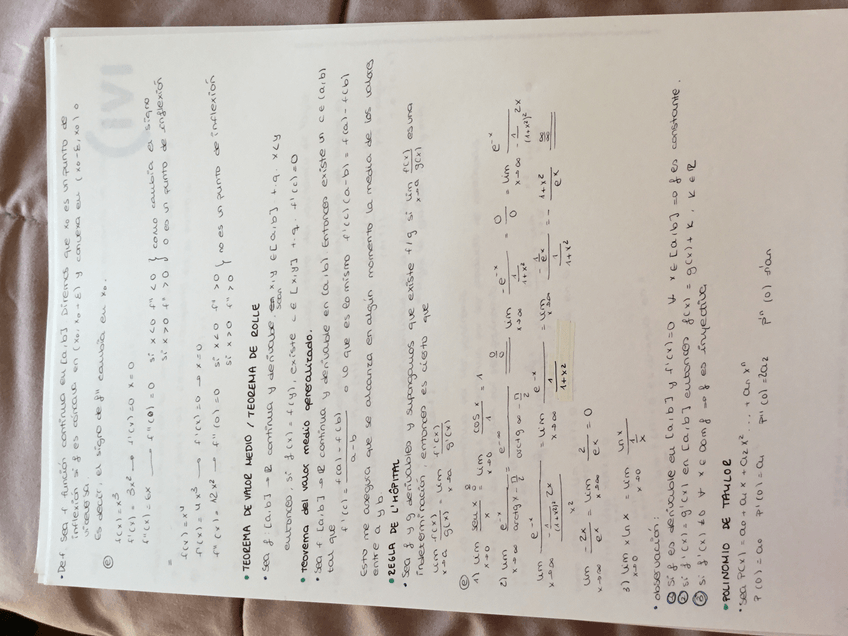 • Def Sea f función continua en [a,b] Diremos que x₀ es un punto de
inflexión si f es cóncava en (x₀, x₀+δ) y convexa en (x₀-δ, x₀) o
viceversa
Es decir, el signo de f'' cambia en x₀.
ⓔ f(x) = x³
f'(x) = 3x² → f'(x)=0 x=0
f''(x) = 6x → f''(0) = 0 si x<0 f''<0 } como cambia el signo
si x>0 f''>0 } 0 es un punto de inflexión
=
f(x) = x⁴
f'(x) = 4x³ → f'(x)=0 → x=0
f''(x) = 12x² → f''(0)=0 si x<0 f''>0 } no es un punto de inflexión
si x>0 f''>0 }
• TEOREMA DE VALOR MEDIO / TEOREMA DE ROLLE
• Sea f [a,b] → ℝ continua y derivable, sean x,y ∈ [a,b] t.q. x<y
entonces, si f(x) = f(y), existe c ∈ [x,y] t.q. f'(c)=0
• Teorema del valor medio generalizado.
• Sea f [a,b] → ℝ continua y derivable en (a,b). Entonces existe un c ∈ (a,b)
tal que
f'(c) = f(a)-f(b) / a-b o lo que es lo mismo f'(c)(a-b) = f(a)-f(b)
Esto me asegura que se alcanza en algún momento la media de los valores
entre a y b
• REGLA DE L'HÔPITAL
• Sea f y g derivables y supongamos que existe f/g si lim x→a f(x)/g(x) es una
indeterminación, entonces es cierto que
lim x→a f(x)/g(x) = lim x→a f'(x)/g'(x)
ⓔ
1) lim x→0 sen x / x 0/0 = lim x→0 cos x / 1 = 1
2) lim x→∞ e⁻ˣ / arctg x - π/2 = e^-∞ / arctg ∞ - π/2 0/0 = lim x→∞ -e⁻ˣ / 1/1+x² = 0/0 = lim x→∞ e⁻ˣ / -1/(1+x²)² 2x
lim x→∞ e⁻ˣ / -1/(1+x²)² 2x / x² = lim x→∞ e⁻ˣ / 1/1+x² = lim x→∞ -1/eˣ / 1/1+x² = - 1+x²/eˣ ∞/∞
lim x→∞ -2x/eˣ = lim x→∞ 2/eˣ = 0
3) lim x→0 x ln x = lim x→0 ln x / 1/x
• Observación:
① Si f es derivable en [a,b] y f'(x)=0 ∀ x ∈ [a,b] ⇒ f es constante.
② Si f'(x) = g'(x) en [a,b] entonces f(x) = g(x) + k, k ∈ ℝ
③ Si f'(x) ≠ 0 ∀ x ∈ Dom f ⇒ f es inyectiva
• POLINOMIO DE TAYLOR
• Sea P(x) = a₀ + a₁x + a₂x² ... + aₙxⁿ
P(0) = a₀ P'(0) = a₁ P''(0) = 2a₂ Pⁿ(0) = n!an